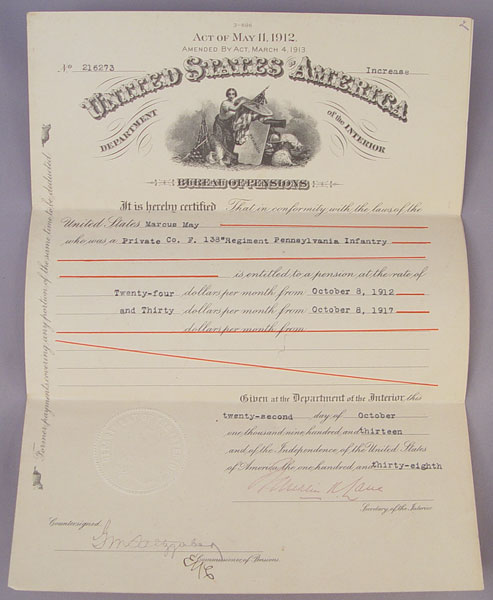 3-466
ACT OF MAY 11, 1912.
AMENDED BY ACT, MARCH 4, 1913
No 216273
Increase
UNITED STATES OF AMERICA
DEPARTMENT
of the INTERIOR
BUREAU OF PENSIONS
It is hereby certified That in conformity with the laws of the
United States Marcus May
who was a Private Co. F. 138" Regiment Pennsylvania Infantry
is entitled to a pension at the rate of
Twenty-four dollars per month from October 8, 1912
and Thirty dollars per month from October 8, 1917
dollars per month from
Given at the Department of the Interior this
twenty-second day of October
one thousand nine hundred and thirteen
and of the Independence of the United States
of America the one hundred and thirty-eighth
Franklin K Lane
Secretary of the Interior
Countersigned,
Commissioner of Pensions.
Former payments covering any portion of the same time to be deducted